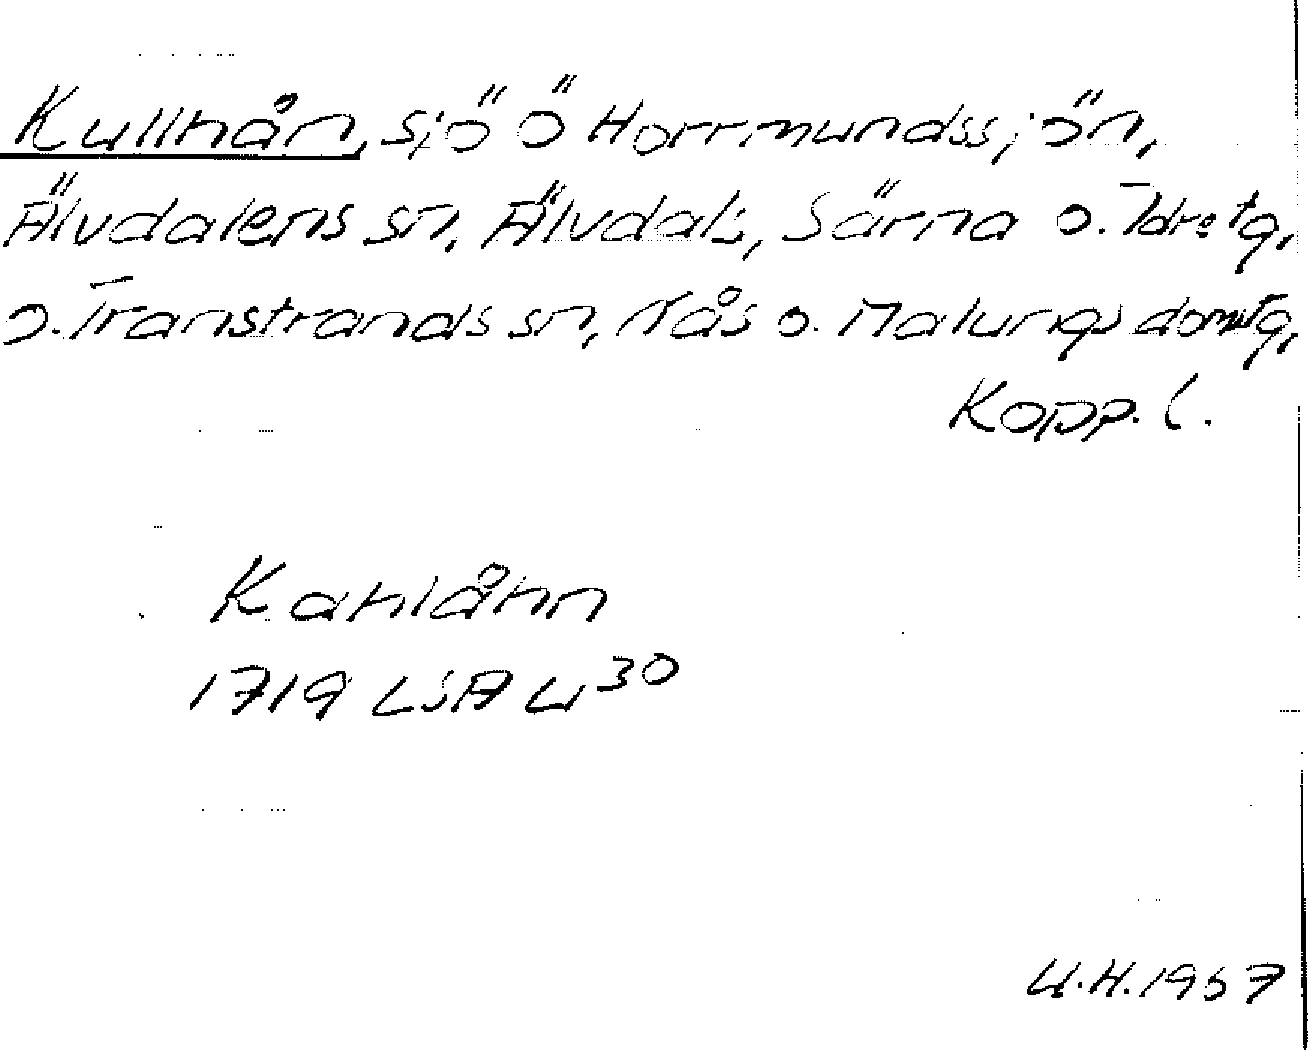 Kullhån, sjö Ö Horrmundssjön,
Älvdalens sn, Älvdals, Särna o. Idre tg,
o. Transtrands sn, Nås o. Malungs domstg,
Kopp. l.
Kahlåhn
1719 LSA W 30
U.H. 1967